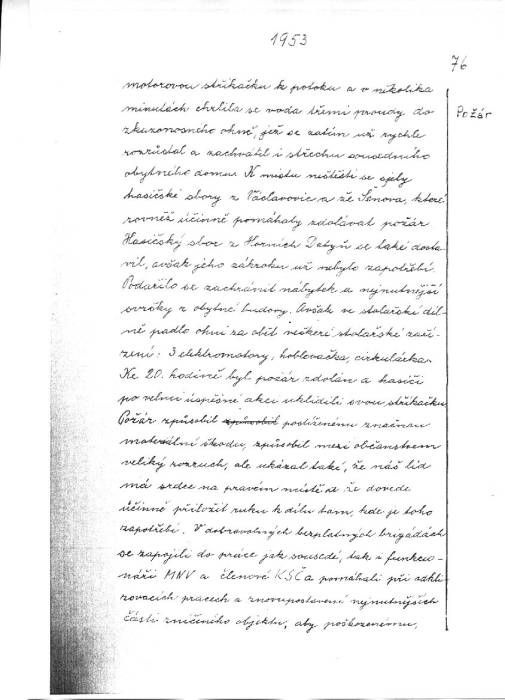 1953
76
Požár
motorovou stříkačku k potoku a v několika
minutách chrlila se voda třemi proudy do
zkázonosného ohně, jež se zatím už rychle
rozrůstal a zachvátil i střechu sousedního
obytného domu. K místu neštěstí se sjely
hasičské sbory z Václavovic a ze Šenova, které
rovněž účinně pomáhaly zdolávat požár
Hasičský sbor z Horních Datyň se také dosta-
vil, avšak jeho zákroku už nebylo zapotřebí.
Podařilo se zachránit nábytek a nejnutnější
svršky z obytné budovy. Avšak ve stolařské díl-
ně padlo ohni za oběť veškeré stolařské zaří-
zení: 3 elektromotory, hoblovačka, cirkulárka.
Ke 20. hodině byl požár zdolán a hasiči
po velmi úspěšné akci uklidili svou stříkačku
Požár způsobil způsobil postiženému značnou
materiální škodu, způsobil mezi občanstvem
veliký rozruch, ale ukázal také, že náš lid
má srdce na pravém místě a že dovede
účinně přiložit ruku k dílu tam, kde je toho
zapotřebí. V dobrovolných bezplatných brigádách
se zapojili do práce jak sousedé, tak i funkcio-
náři MNV a členové KSČ a pomáhali při odkli-
zovacích pracech a znovupostavení nejnutnějších
části zničeného objektu, aby poškozenému,